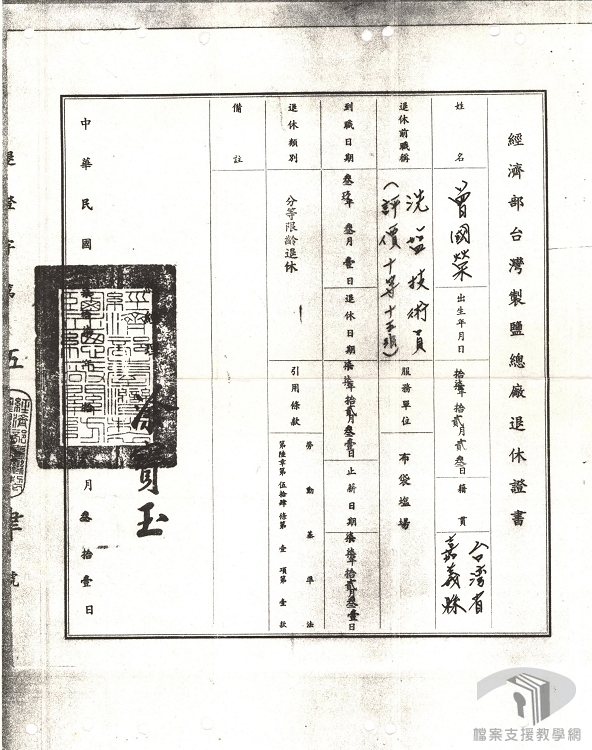 經濟部台灣製鹽總廠退休證書
姓名
曾國榮
出生年月日
拾柒年拾貳月貳叁日
籍貫
台灣省
嘉義縣
退休前職稱
洗鹽技術員
(評價十等十五級)
服務單位
布袋塩場
到職日期
叁玖年叁月壹日
退休日期
柒柒年拾貳月叁壹日
止薪日期
柒柒年拾貳月叁壹日
退休類別
分等限齡退休
引用條款
勞動基準法
第陸章第伍拾肆條第壹項第壹款
備註
余寶玉
中華民國
月叁拾壹日
字第
號
檔案支援教學網